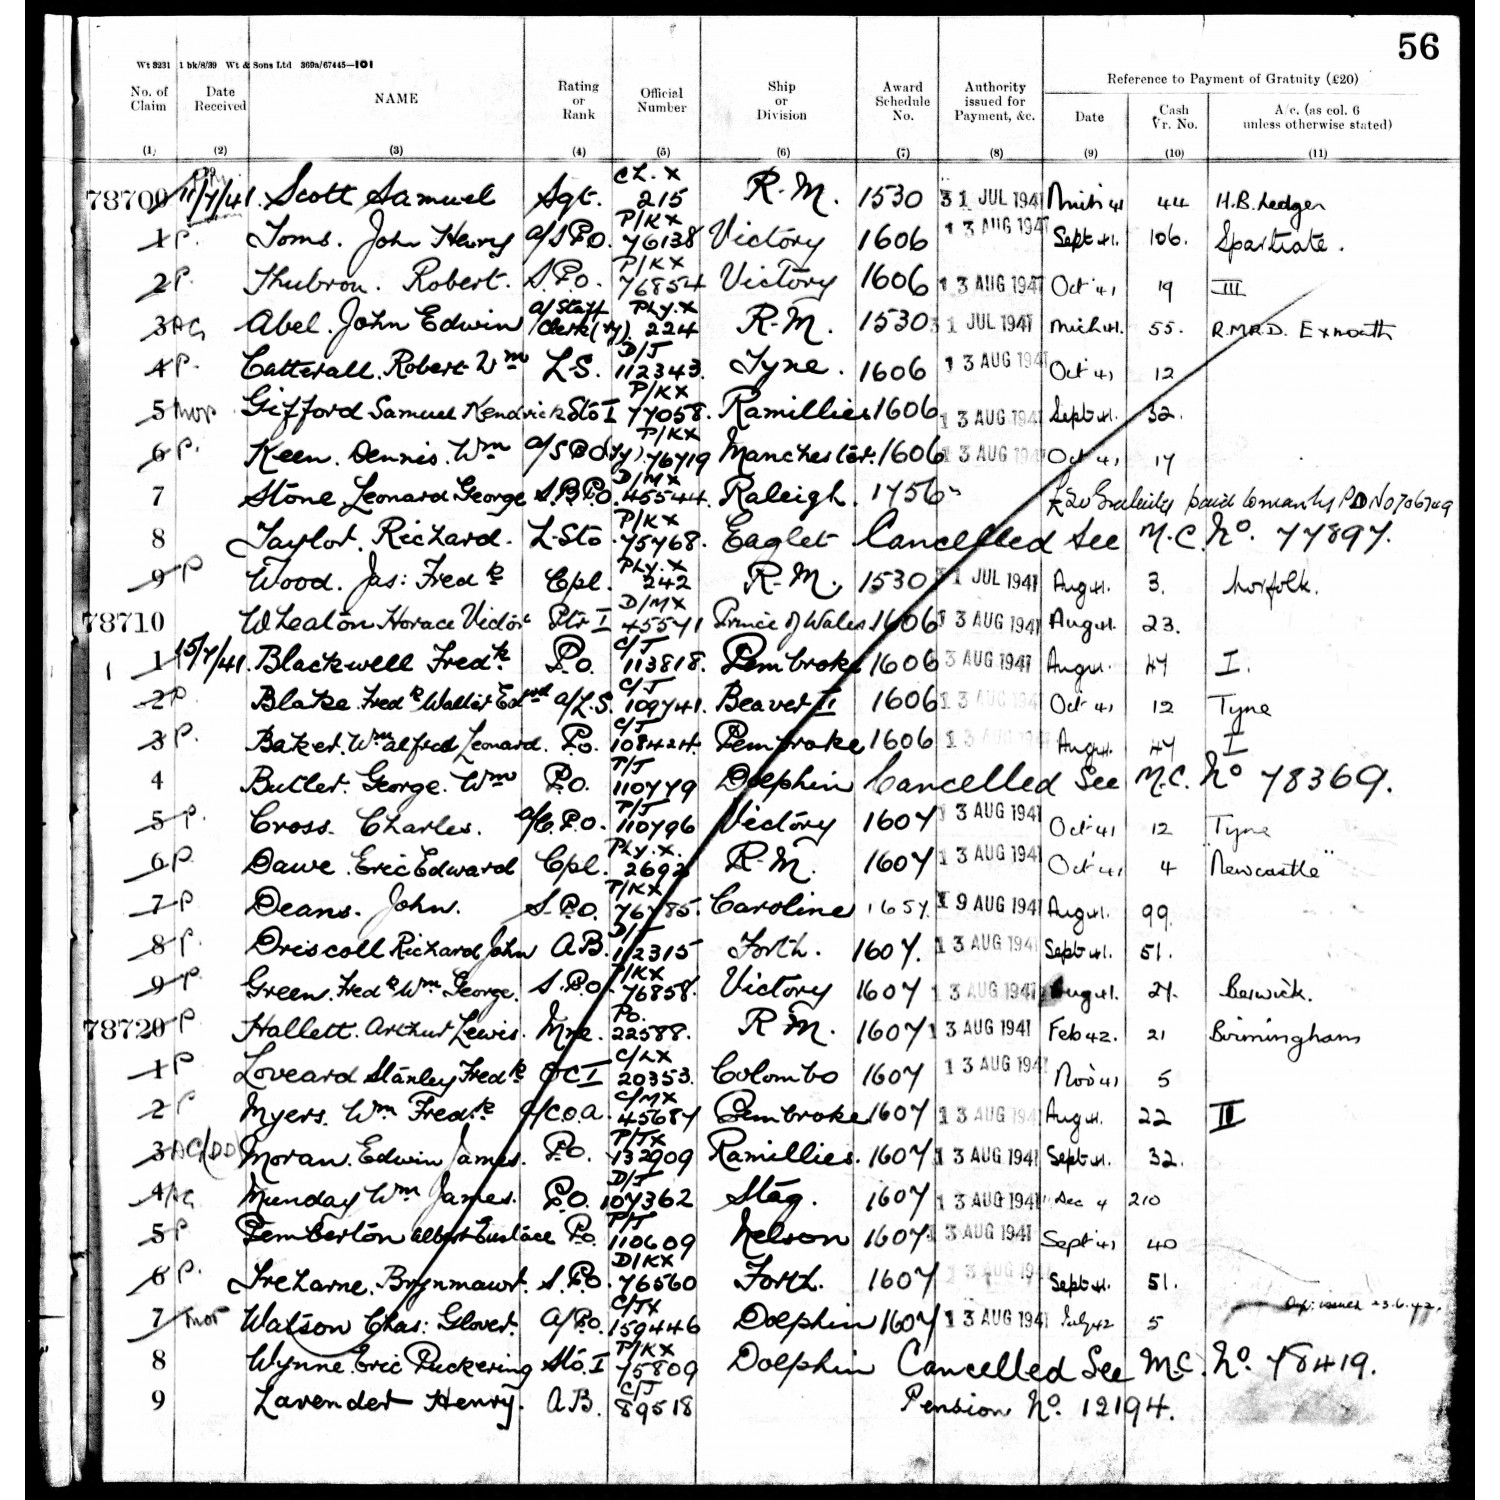 56
Wt 3231 1 bk/8/39 Wt & Sons Ltd 369a/67445—101
Reference to Payment of Gratuity (£20)
No. of Claim Date Received NAME Rating or Rank Official Number Ship or Division Award Schedule No. Authority issued for Payment, &c. Date Cash Vr. No. A/c. (as col. 6 unless otherwise stated)
(1) (2) (3) (4) (5) (6) (7) (8) (9) (10) (11)
78700 11/7/41. Scott Samuel Sgt. CH.X 215 R.M. 1530 31 JUL 1941 44 H.B. Ledger
1 P. Toms. John Henry a/S.P.O. P/KX 76138 Victory 1606 13 AUG 1941 Sept 41. 106. Spartiate.
2 P. Thubron. Robert. S.P.O. P/KX 76854 Victory 1606 13 AUG 1941 Oct 41 19 III
3 AG Abel. John Edwin a/Staff Clerk (ty). PLY.X 224 R.M. 1530 31 JUL 1941 Mich 41. 55. R.M.R.D. Exmouth
4 P. Catterall. Robert Wm L.S. D/J 112343. Tyne. 1606 13 AUG 1941 Oct 41 12
5 Gifford Samuel Kendrick Sto I P/KX 77058. Ramillies 1606 13 AUG 1941 Sept 41. 32.
6 P. Keen. Dennis. Wm a/S P O (ty). P/KX 76719 Manchester. 1606 13 AUG 1941 Oct 41 17
7 Stone Leonard George S.B.P.O. D/MX 45544. Raleigh. 1756 £20 Gratuity paid
8 Taylor. Richard. L.Sto. P/KX 75768. Eaglet Cancelled See M.C. No. 77897.
9 P Wood. Jas: Fredk Cpl. PLY.X 242 R.M. 1530 31 JUL 1941 Aug 41. 3. Norfolk.
78710 Wheaton Horace Victor Ptr I D/MX 45571 Prince of Wales 1606 13 AUG 1941 Aug 41. 23.
1 15/7/41. Blackwell Fredk P.O. C/J 113818. Pembroke 1606 13 AUG 1941 Aug 41. 47 I.
2 P. Blake. Fredk Walter Edwd a/L.S. C/J 109741. Beaver II 1606 13 AUG 1941 Oct 41 12 Tyne
3 P. Baker. Wm alfred Leonard. P.O. C/J 108424. Pembroke 1606 13 AUG 1941 Aug 41. 47 I
4 Butler. George. Wm P.O. P/J 110779 Dolphin Cancelled See M.C. No 78369.
5 P. Cross. Charles. a/C.P.O. P/J 110796 Victory 1607 13 AUG 1941 Oct 41 12 Tyne
6 P. Dawe. Eric Edward Cpl. PLY.X. 2692 R.M. 1607 13 AUG 1941 Oct 41 4 Newcastle
7 P Deans. John. S.P.O. P/KX 76785. Caroline 1657. 19 AUG 1941 Aug 41. 99.
8 P. Driscoll Richard John A.B. D/J 112315 Forth. 1607. 13 AUG 1941 Sept 41. 51.
9 P. Green. Fredk Wm George. S.P.O. P/KX 76858. Victory 1607 13 AUG 1941 Aug 41. 27. Berwick.
78720 P Hallett. Arthur Lewis. Mne. Po. 22588. R.M. 1607 13 AUG 1941 Feb 42. 21 Birmingham
1 P. Loveard Stanley Fredk O C I C/LX 20353. Colombo 1607 13 AUG 1941 Nov 41 5
2 P Myers. Wm Fredk. C/MX 45687 Pembroke 1607 13 AUG 1941 Aug 41. 22 II
3 AC/(DD) Moran. Edwin James. P.O. P/JX 132909 Ramillies. 1607 13 AUG 1941 Sept 41. 32.
4 AG Munday Wm James. P.O. D/J 107362 Stag. 1607 13 AUG 1941 Dec 4 210
5 P Pemberton albert Eustace P.O. P/J 110609 Nelson 1607 13 AUG 1941 Sept 41 40
6 P. Treharne. Brynmawr. S.P.O. D/KX 76560 Forth. 1607 13 AUG 1941 Sept 41. 51.
7 Watson Chas: Glover. A/P.O. C/JX 159446 Dolphin 1607 13 AUG 1941 July 42 5 issued 23.6.42.
8 Wynne Eric Puckering Sto. I P/KX 75809 Dolphin Cancelled See M.C. No. 78419.
9 Lavender Henry. A.B. C/J 89518 Pension No. 12194.